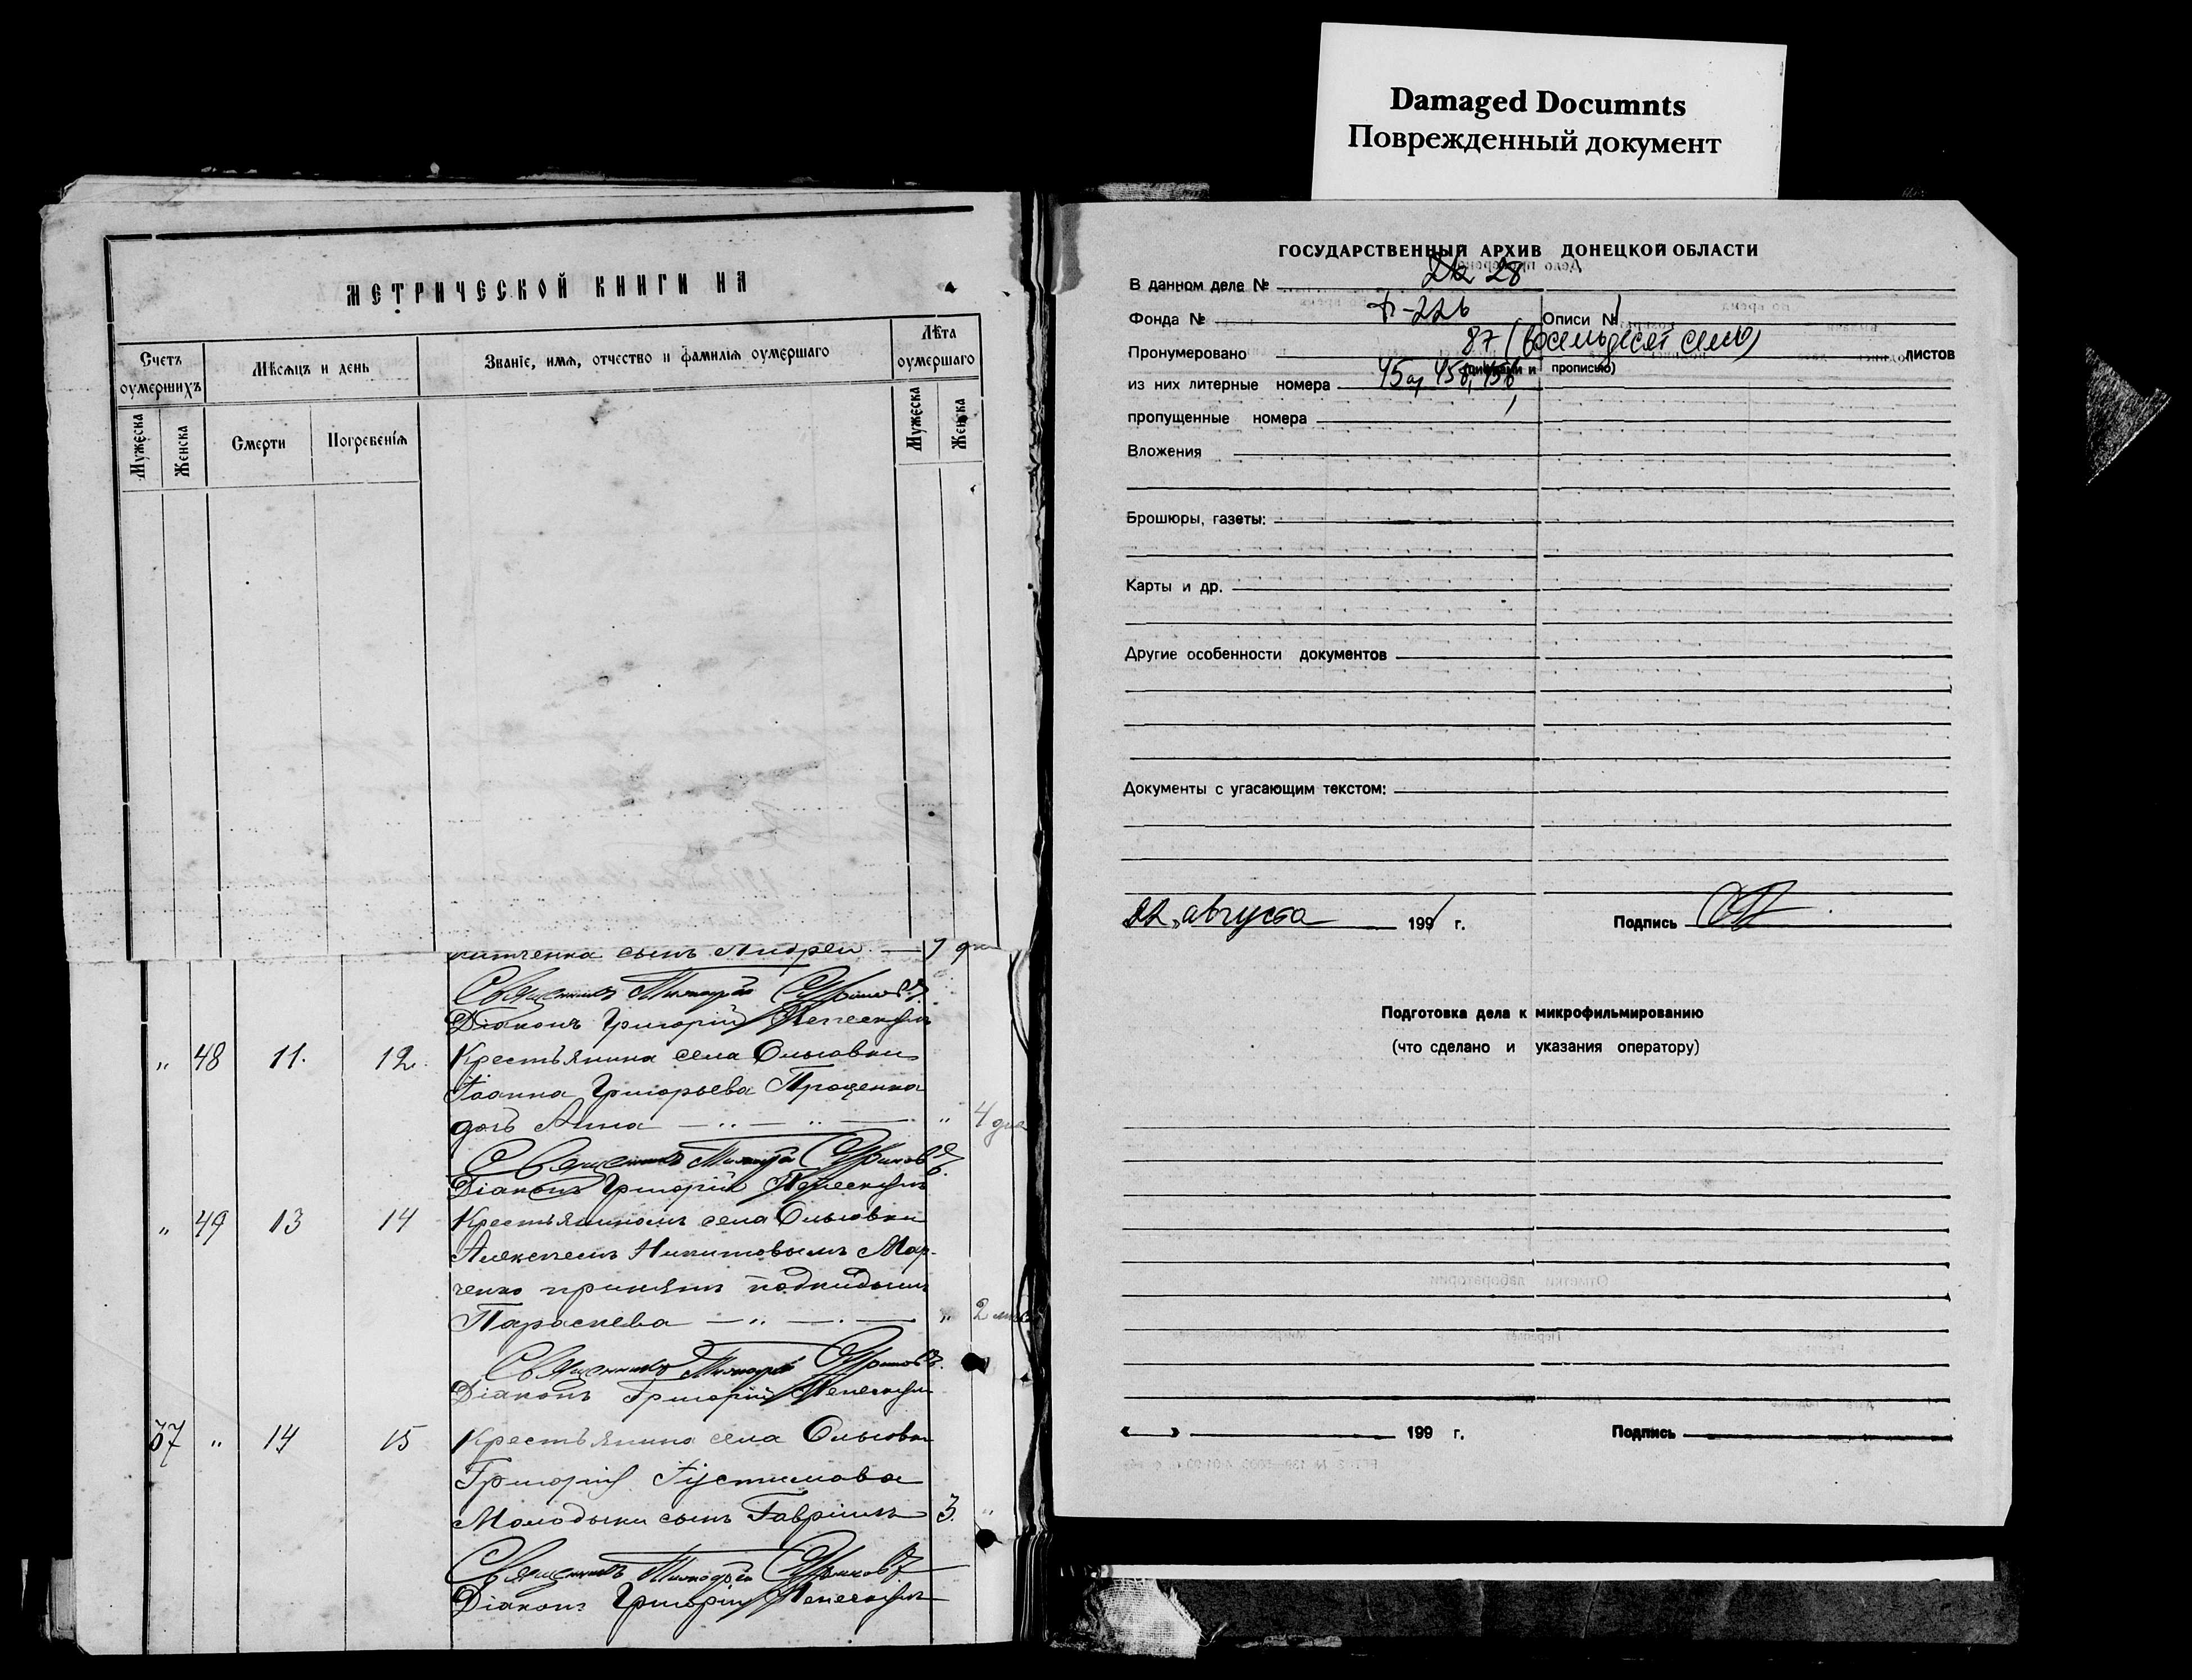 Damaged Documnts
Поврежденный документ
МЕТРИЧЕСКОЙ КНИГИ НА
Счетъ оумершихъ
Мѣсяцъ и день
Званіе, имя, отчество и фамилія оумершаго
Лѣта оумершаго
Мужеска
Женска
Смерти
Погребенія
Мужеска
Женска
сынъ Андрей — 7 дн
Священникъ
Діаконъ Григорій
„ 48 11. 12. Крестьянина села Ольховки
Іоанна Григорьева Проценка
дочь Анна — „ — „ — „ 4 дня
Священникъ
Діаконъ Григорій
„ 49 13 14 Крестьяниномъ села Ольховки
Алексѣемъ Никитовымъ Мар-
ченко принятъ подкидышъ
Параскева — „ — „ — „ 2 мѣс
Священникъ
Діаконъ Григорій
37 „ 14 15 Крестьянина села Ольховки
Григорія Іустинова
Молодыки сынъ Гавріилъ 3. „
Священникъ
Діаконъ Григорій
ГОСУДАРСТВЕННЫЙ АРХИВ ДОНЕЦКОЙ ОБЛАСТИ
В данном деле № 28
Фонда № Ф-226 Описи № 1
Пронумеровано 87 (восемьдесят семь) листов
(цифрами и прописью)
из них литерные номера 45а, 45б, 45в
пропущенные номера
Вложения
Брошюры, газеты:
Карты и др.
Другие особенности документов
Документы с угасающим текстом:
22 августа 199 г. Подпись
Подготовка дела к микрофильмированию
(что сделано и указания оператору)
« » 199 г. Подпись